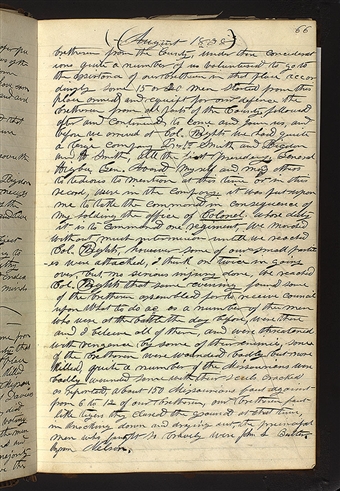 66
(August 1838)
brethren from the County, under those considerations
quite a number of us volunteered to go to
the assistance of our brethren in that place accordingly
some 15 or 20 men started from this
place armed and equipt for our defence the
brethren from all parts of the County, followed
after and continued to come and join us and
before we arrived at Col. Wights we had quite
a large company Smith and Rigdon
and H Smith, All the first presidency, General
Higbee, Gen. Hoard Myself and many others
to tedious to mention at this time or in this
record, were in the company it was put upon
me to take the command in consequence of
my holding the office of Colonel. whose duty
it is to command one regiment, we marched
without much intermission until we reached
Col. Wights, however some of our small parties
were attacked, I think on twice in going
over, but no serious injury done, we reached
Col. Wights that same evening found some
of the brethren assembled to receive council
upon What to do &c as a number of the men
who were at the battle the day before, were there
and I believe all of them, and were threatened
with vengance by some of their enimies, some
of the brethren were wounded badly but none
killed, quite a number of the Missourians were
badly wounded some with their sculls cracked
as reported, about 150 Missourians faut against
from 6 to 12 of our brethren, our brethren faut
like tigers they cleared the ground at that time,
in knocking down and draging out, the principal
men who faught so bravely were John L Butler,
Hyrum Nelson,